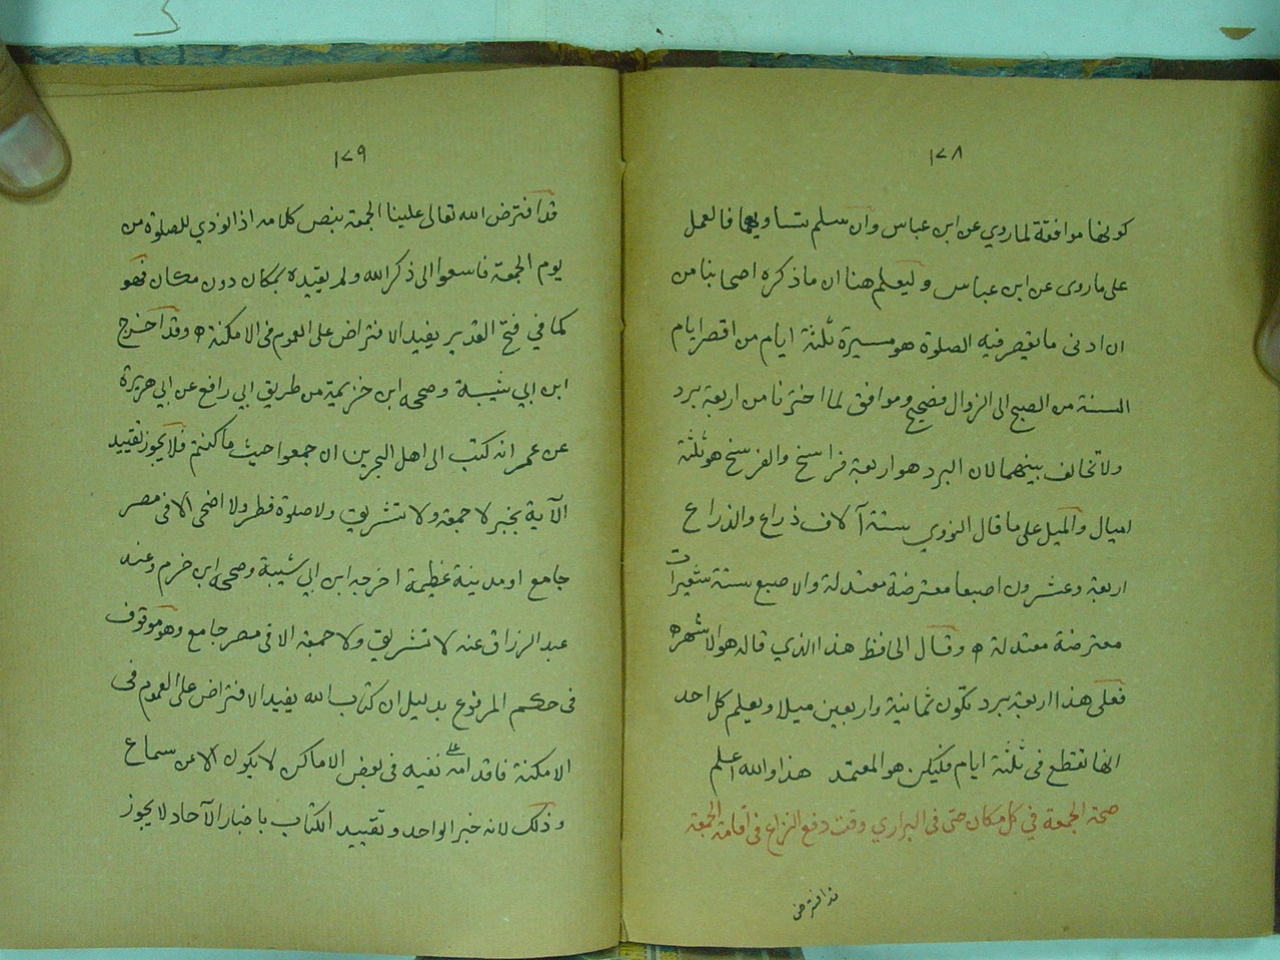 ١٧٨
كونها موافقة لما روي عن ابن عباس وان سلم تساويهما فالعمل
على ما روى عن ابن عباس وليعلم هنا ان ما ذكره اصحابنا من
ان ادنى ما يقصر فيه الصلوة هو مسيرة ثلثة ايام من اقصر ايام
السنة من الصبح الى الزوال فصحيح وموافق لما اخترنا من اربعة برد
ولا تخالف بينهما لان البرد هو اربعة فراسخ والفرسخ هو ثلثة
اميال والميل على ما قال النووي ستة آلاف ذراع والذراع
اربعة وعشرون اصبعا معترضة معتدلة والاصبع ستة شعيرات
معترضة معتدلة ه وقال الحافظ هذا الذي قاله هو الاشهر ه
فعلى هذا اربعة برد تكون ثمانية واربعين ميلا ويعلم كل احد
انها تقطع في ثلثة ايام فليكن هو المعتمد هذا والله اعلم
صحة الجمعة في كل مكان حتى في البراري وقت دفع النزاع في اقامة الجمعة
قد افترض
١٧٩
قد افترض الله تعالى علينا الجمعة بنص كلامه اذا نودي للصلوة من
يوم الجمعة فاسعوا الى ذكر الله ولم يقيده بمكان دون مكان فهو
كما في فتح القدير يفيد الافتراض على العموم في الامكنة ه وقد اخرج
ابن ابي شيبة وصححه ابن خزيمة من طريق ابي رافع عن ابي هريرة
عن عمر انه كتب الى اهل البحرين ان جمعوا حيث ما كنتم فلا يجوز تقييد
الآية بخبر لا جمعة ولا تشريق ولا صلوة فطر ولا اضحى الا في مصر
جامع او مدينة عظيمة اخرجه ابن ابي شيبة وصححه ابن حزم وعند
عبد الرزاق عنه لا تشريق ولا جمعة الا في مصر جامع وهو موقوف
في حكم المرفوع بدليل ان كتاب الله يفيد الافتراض على العموم في
الامكنة فاقدامه نفيه في بعض الاماكن لا يكون الا عن سماع
وذلك لانه خبر الواحد وتقييد الكتاب باخبار الآحاد لا يجوز